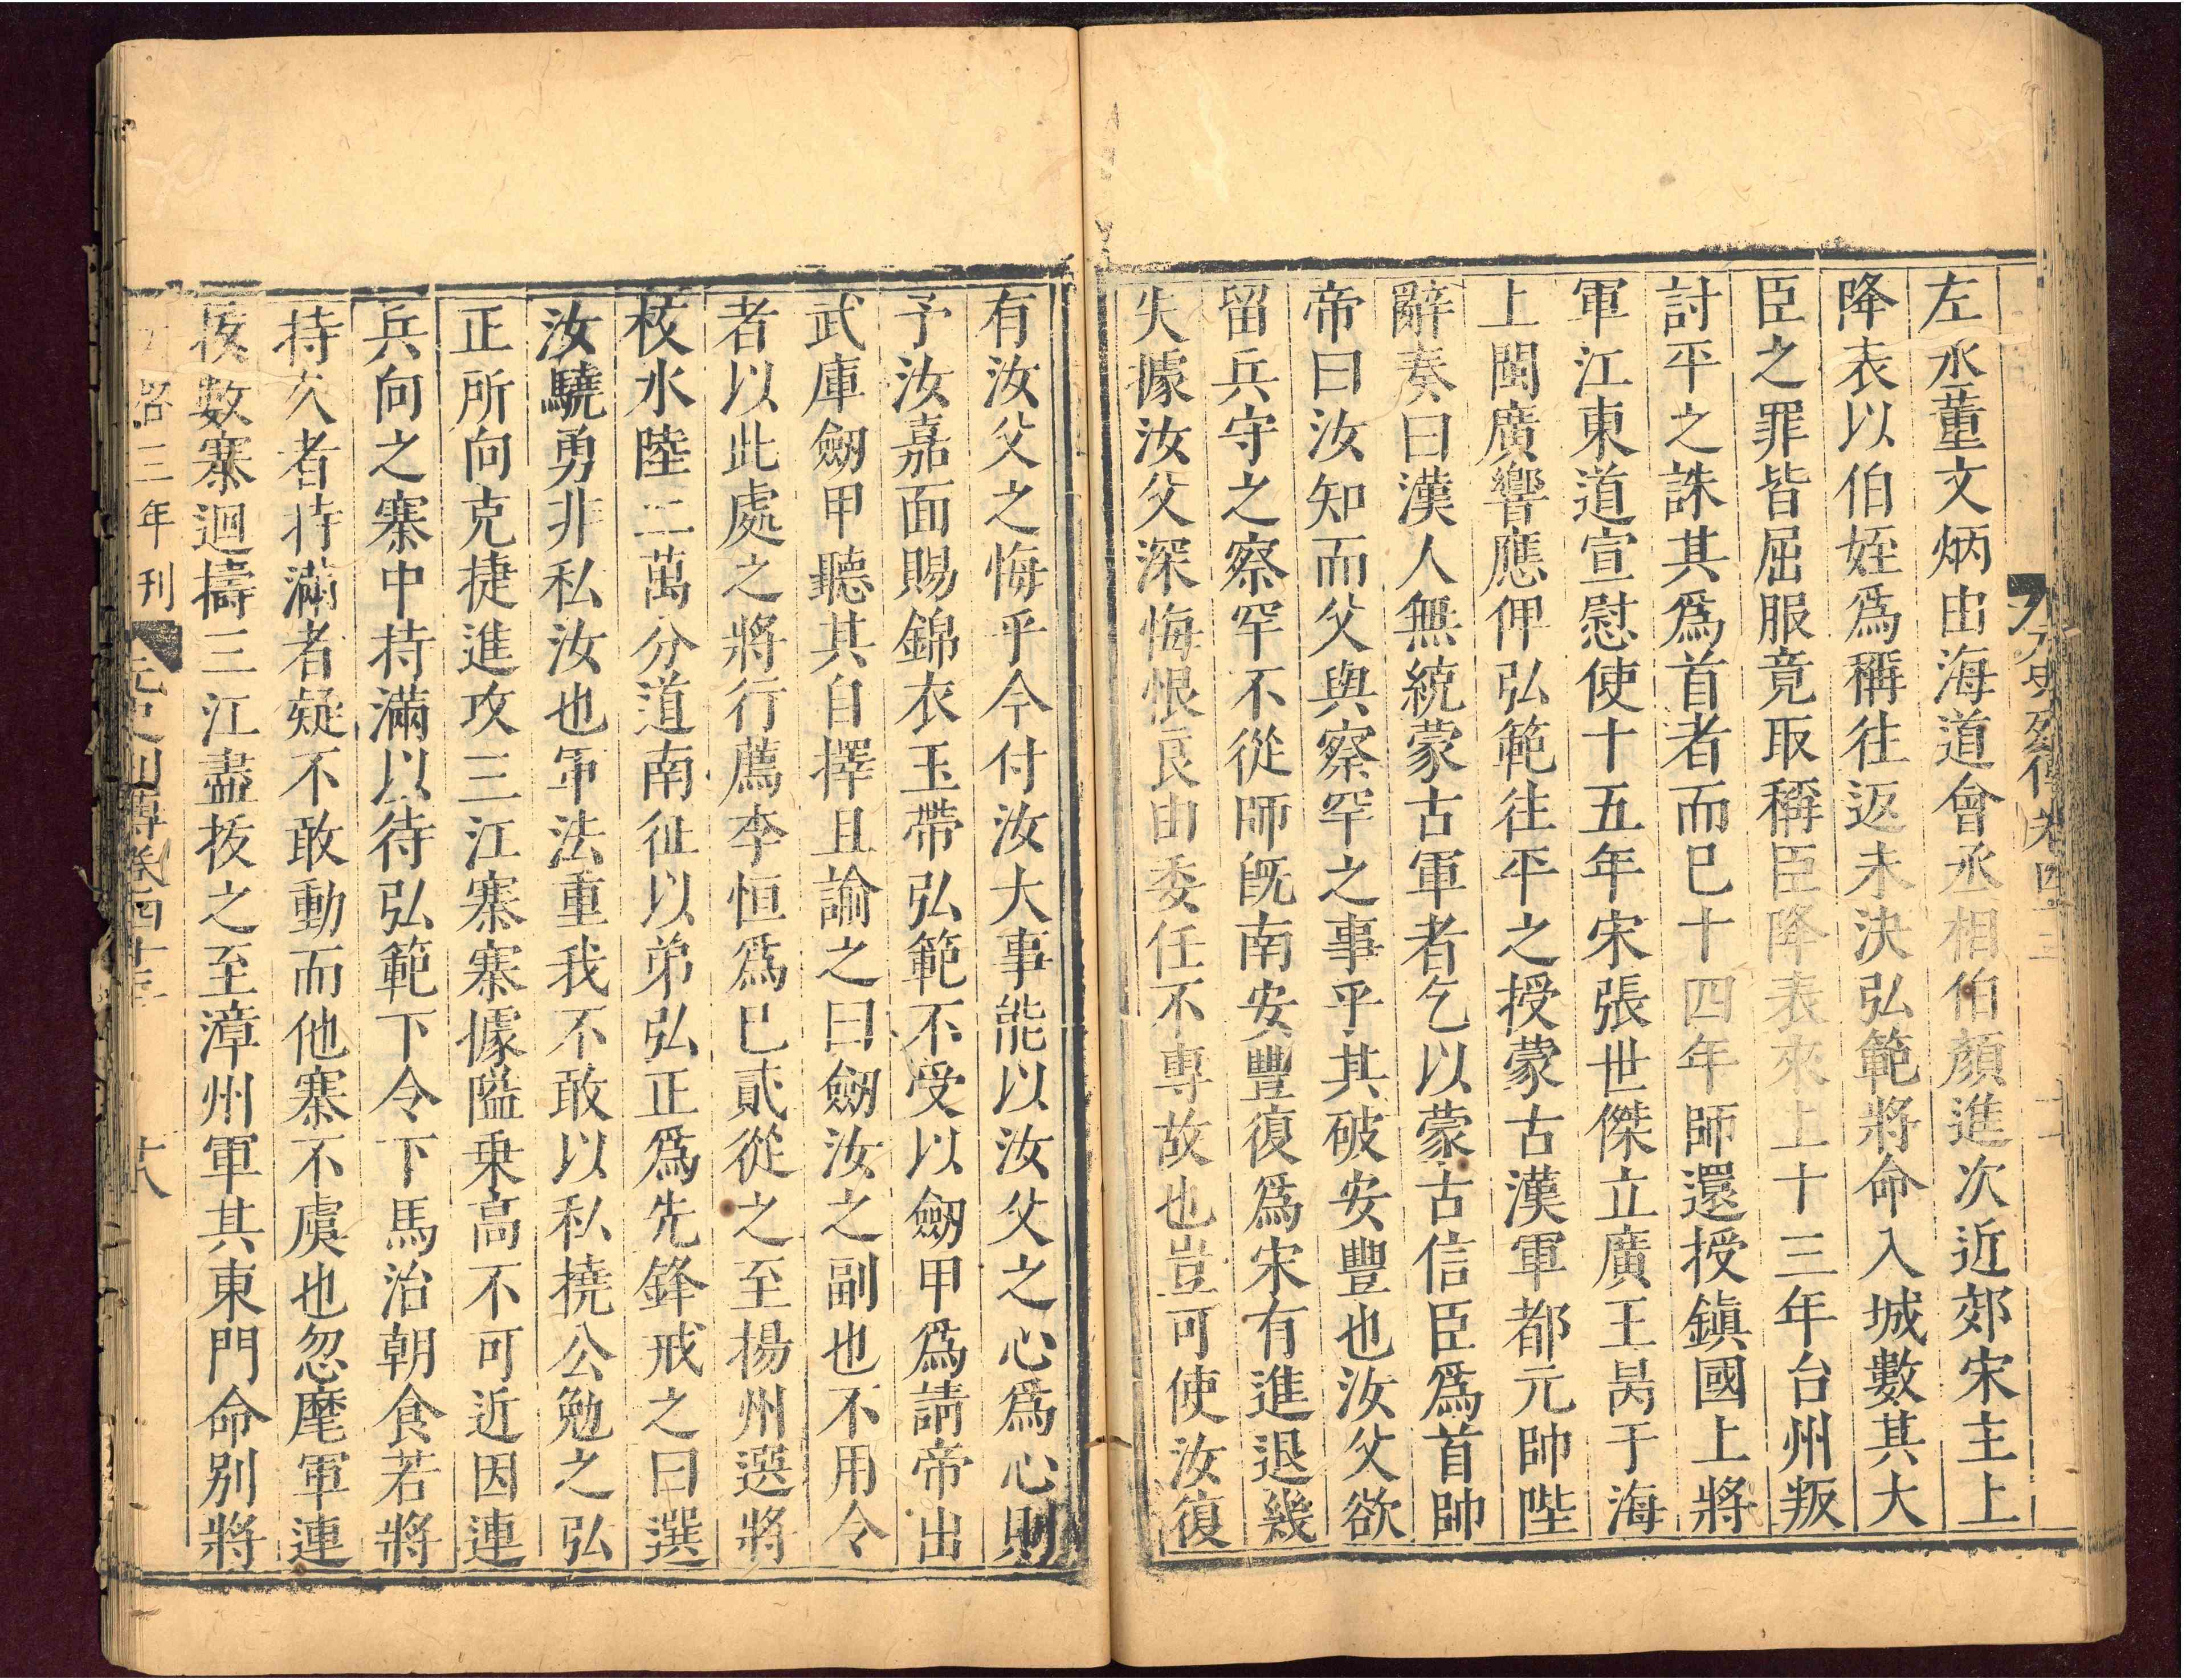 左丞董文炳由海道會丞相伯顏進次近郊宋主上
降表以伯姪爲稱往返未決弘範將命入城數其大
臣之罪皆屈服竟取稱臣降表來上十三年台州叛
討平之誅其爲首者而已十四年師還授鎭國上將
軍江東道宣慰使十五年宋張世傑立廣王昺于海
上閩廣響應俾弘範往平之授蒙古漢軍都元帥陛
辭奏曰漢人無統蒙古軍者乞以蒙古信臣爲首帥
帝曰汝知而父與察罕之事乎其破安豐也汝父欲
留兵守之察罕不從師旣南安豐復爲宋有進退幾
失據汝父深悔恨良由委任不專故也豈可使汝復
有汝父之悔乎今付汝大事能以汝父之心爲心則
予汝嘉面賜錦衣玉帶弘範不受以劒甲爲請帝出
武庫劒甲聽其自擇且諭之曰劒汝之副也不用令
者以此處之將行薦李恒爲巳貳從之至揚州選將
校水陸二萬分道南征以弟弘正爲先鋒戒之曰選
汝驍勇非私汝也軍法重我不敢以私撓公勉之弘
正所向克捷進攻三江寨寨據隘乗高不可近因連
兵向之寨中持滿以待弘範下令下馬治朝食若將
持久者持滿者疑不敢動而他寨不虞也忽麾軍連
拔數寨迴擣三江盡拔之至漳州軍其東門命別將
三年刊 元史列傳卷四十三 十八